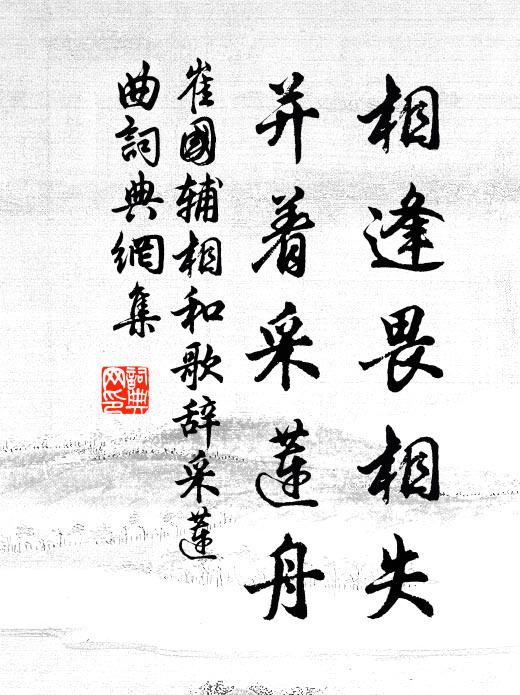 相逢畏相失
并着采莲舟
崔國辅相和歌辞采蓮
曲詞典網集
詞典
网印